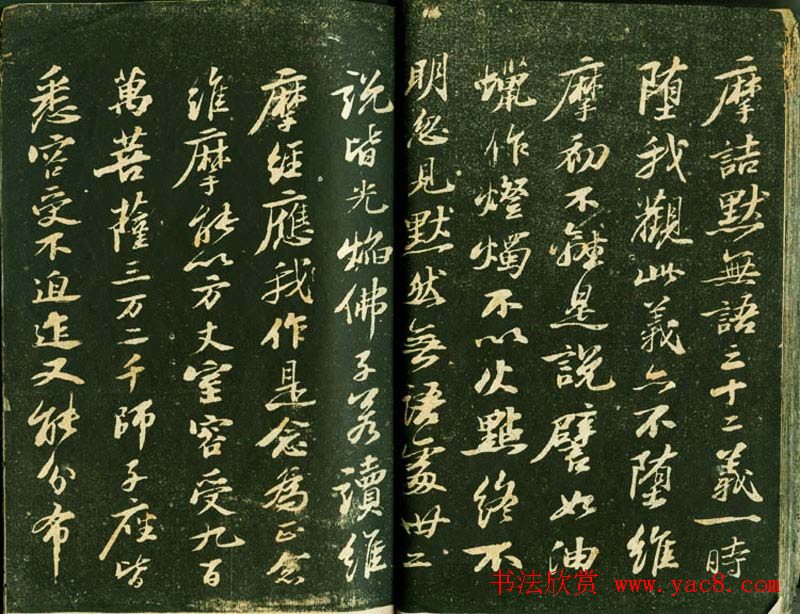 摩詰默無語三十二義一時
堕我觀此義亦不堕維
摩初不離是說譬如油
蠟作燈燭不以火點終不
明忽見默然無語處卅二
説皆光焰佛子若讀維
摩經應我作是念為正念
維摩能以方丈室容受九百
萬菩薩三万二千師子座皆
悉容受不迫迮又能分布
书法欣赏 www.yac8.com